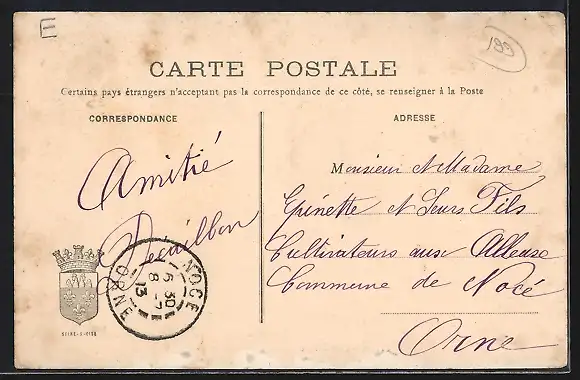 E
199
CARTE POSTALE
Certains pays étrangers n'acceptant pas la correspondance de ce côté, se renseigner à la Poste
CORRESPONDANCE
Amitié
SEINE-&-OISE
NOCÉ
5 30
8 - 7
13
ORNE
ADRESSE
Monsieur et Madame
Epinette et Leurs Fils
Cultivateurs aux
Commune de Nocé
Orne